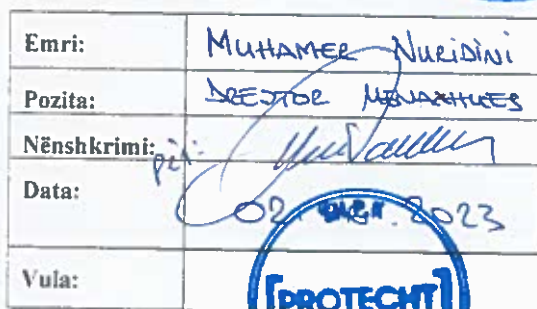 Emri: MUHAMER NURIDINI
Pozita: DREJTOR MENAXHUES
Nënshkrimi:
për:
Data: 02. 2023
Vula:
[PROTECHT]